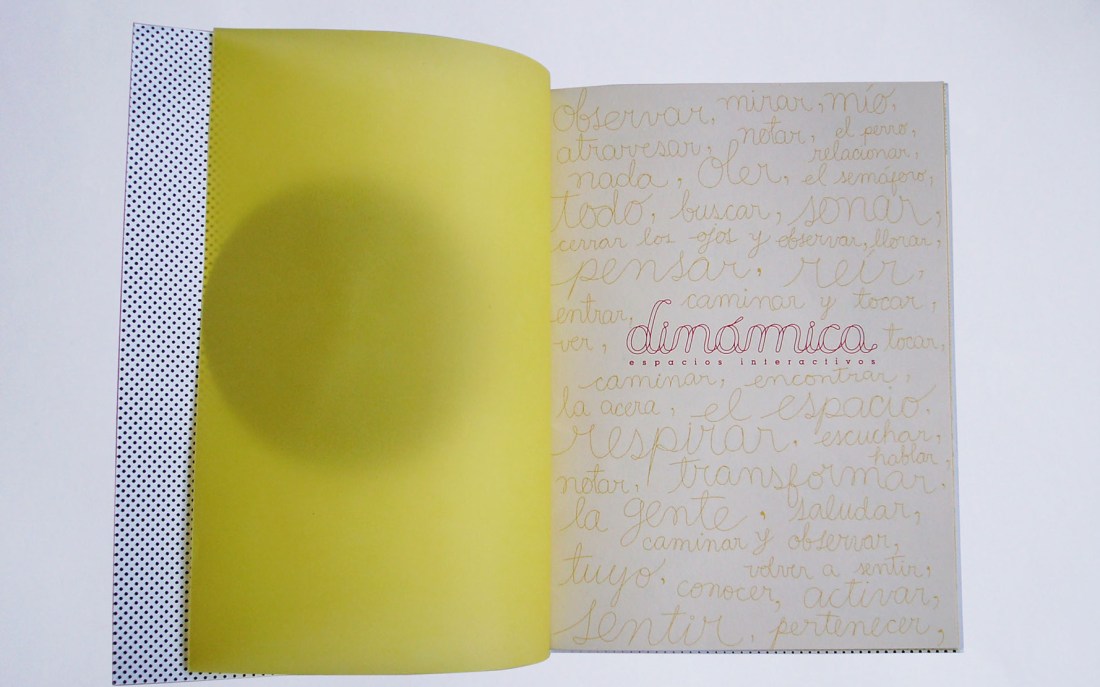 observar, mirar, mío,
atravesar, notar, el perro,
relacionar,
nada, Oler, el semáforo,
todo, buscar, sonar,
cerrar los ojos y observar, llorar,
pensar, reír,
entrar, caminar y tocar,
dinámica
ver, tocar,
espacios interactivos
caminar, encontrar,
la acera, el espacio,
respirar, escuchar,
hablar,
notar, transformar,
la gente, saludar,
caminar y observar,
tuyo, volver a sentir,
conocer, activar,
sentir, pertenecer,